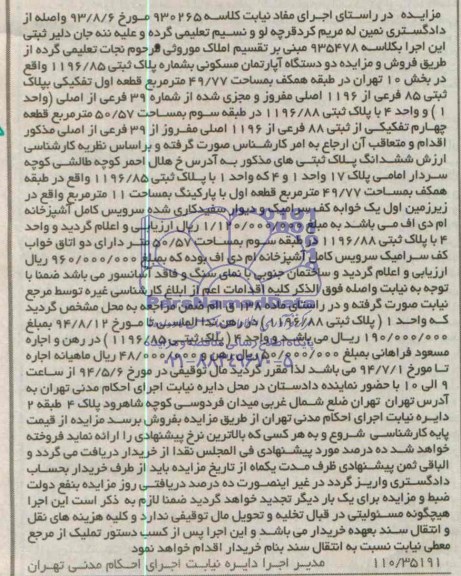 مزایده در راستای اجرای مفاد نیابت کلاسه ۹۳۰۲۶۵ مورخ ۹۳/۸/۶ واصله از
دادگستری نمین له مریم کردقرچه لو و نسیم تعلیمی گرده و علیه ننه جان دلیر ثبتی
این اجرا بکلاسه ۹۳۵۴۷۸ مبنی بر تقسیم املاک موروثی مرحوم نجات تعلیمی گرده از
طریق فروش و مزایده دو دستگاه آپارتمان مسکونی بشماره پلاک ثبتی ۱۱۹۶/۸۵ واقع
در بخش ۱۰ تهران در طبقه همکف بمساحت ۴۹/۷۷ مترمربع قطعه اول تفکیکی بپلاک
ثبتی ۸۵ فرعی از ۱۱۹۶ اصلی مفروز و مجزی شده از شماره ۳۹ فرعی از اصلی (واحد
۱ ) و واحد ۴ با پلاک ثبتی ۱۱۹۶/۸۸ در طبقه سوم بمساحت ۵۰/۵۷ مترمربع قطعه
چهارم تفکیکی از ثبتی ۸۸ فرعی از ۱۱۹۶ اصلی مفروز از ۳۹ فرعی از اصلی مذکور
اقدام و متعاقب آن ارجاع به امر کارشناس صورت گرفته و براساس نظریه کارشناسی
ارزش ششدانگ پلاک ثبتی های مذکور به آدرس خ هلال احمر کوچه طالشی کوچه
سردار امامی پلاک ۱۷ واحد ۱ و ۴ که واحد ۱ با پلاک ثبتی ۱۱۹۶/۸۵ واقع در طبقه
همکف بمساحت ۴۹/۷۷ مترمربع قطعه اول با پارکینگ بمساحت ۱۱ مترمربع واقع در
زیرزمین اول یک خوابه کف سرامیک و دیوار سفیدکاری شده سرویس کامل آشپزخانه
ام دی اف می باشد به مبلغ ۱/۱۲۰/۰۰۰/۰۰۰ ریال ارزیابی و اعلام گردید و واحد
۴ با پلاک ثبتی ۱۱۹۶/۸۸ در طبقه سوم بمساحت ۵۰/۵۷ متر دارای دو اتاق خواب
کف سرامیک سرویس کامل آشپزخانه ام دی اف بوده که بمبلغ ۹۶۰/۰۰۰/۰۰۰ ریال
ارزیابی و اعلام گردید و ساختمان جنوبی با نمای سنگ و فاقد آسانسور می باشد ضمنا با
توجه به نیابت واصله فوق الذکر کلیه اقدامات اعم از ابلاغ کارشناسی غیره توسط مرجع
نیابت صورت گرفته و در راستای ماده ۱۳۸ ق الم ضمن مراجعه به محل مشخص گردید
که واحد ۱ ( پلاک ثبتی ۱۱۹۶/۸۸ ) در رهن ندا الماسی تا مورخ ۹۴/۸/۱۲ بمبلغ
۱۹۰/۰۰۰/۰۰۰ ریال می باشد و واحد ۴ ( پلاک ثبتی ۱۱۹۶/۸۵ ) در رهن و اجاره
مسعود فراهانی بمبلغ ۵۰/۰۰۰/۰۰۰ ریال رهن و ۴۸/۰۰۰/۰۰۰ ریال ماهیانه اجاره
تا مورخ ۹۴/۷/۱ می باشد لذا مقرر گردید مال توقیفی در مورخ ۹۴/۵/۶ از ساعت
۹ الی ۱۰ با حضور نماینده دادستان در محل دایره نیابت اجرای احکام مدنی تهران به
آدرس تهران تهران ضلع شمال غربی میدان فردوسی کوچه شاهرود پلاک ۴ طبقه ۲
دایره نیابت اجرای احکام مدنی تهران از طریق مزایده بفروش برسد مزایده از قیمت
پایه کارشناسی شروع و به هر کسی که بالاترین نرخ پیشنهادی را ارائه نماید فروخته
خواهد شد ده درصد مورد پیشنهادی فی المجلس نقدا از خریدار دریافت می گردد و
الباقی ثمن پیشنهادی ظرف مدت یکماه از تاریخ مزایده باید از طرف خریدار بحساب
دادگستری واریز گردد در غیر اینصورت ده درصد دریافتی روز مزایده بنفع دولت
ضبط و مزایده برای یک بار دیگر تجدید خواهد گردید ضمنا لازم به ذکر است این اجرا
هیچگونه مسئولیتی در قبال تخلیه و تحویل مال توقیفی ندارد و کلیه هزینه های نقل
و انتقال سند بعهده خریدار می باشد و این اجرا پس از کسب دستور تملیک از مرجع
معطی نیابت نسبت به انتقال سند بنام خریدار اقدام خواهد نمود
۱۱۰/۳۵۱۹۱ مدیر اجرا دایره نیابت اجرای احکام مدنی تهران